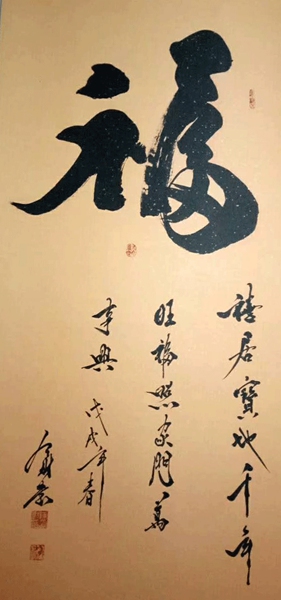 福
禧居寶地千年
旺福照家門萬
事興 戊戌年春